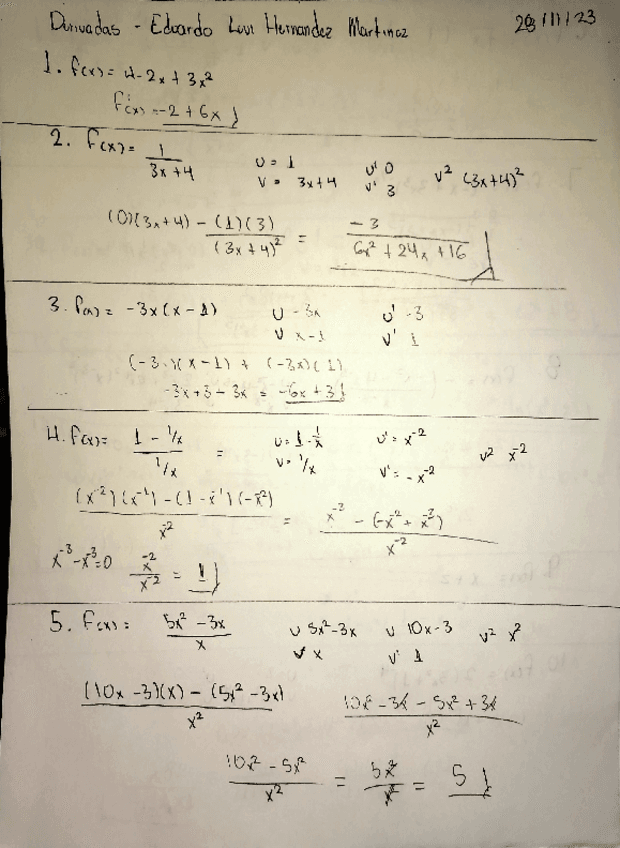 Derivadas - Eduardo Levi Hernandez Martinez 28/11/23
1. f(x) = 4-2x + 3x²
f'(x) = -2 + 6x
2. f(x) = 1 / (3x+4) u = 1 v = 3x+4 u' 0 v' 3 v² (3x+4)²
((0)(3x+4) - (1)(3)) / (3x+4)² = -3 / (6x² + 24x + 16)
3. f(x) = -3x(x-1) u -3x u' -3
v x-1 v' 1
(-3)(x-1) + (-3x)(1)
-3x+3-3x = -6x+3
4. f(x) = (1 - 1/x) / (1/x) = u = 1 - 1/x v = 1/x u' = x⁻² v' = -x⁻² v² x⁻²
((x⁻²)(x⁻¹) - (1 - x⁻¹)(-x⁻²)) / x⁻² = (x⁻³ - (-x⁻² + x⁻³)) / x⁻²
x⁻³ - x⁻³ = 0 x⁻² / x⁻² = 1
5. f(x) = (5x² - 3x) / x u 5x²-3x v x u 10x-3 v' 1 v² x²
((10x-3)(x) - (5x²-3x)) / x² (10x² - 3x - 5x² + 3x) / x²
(10x² - 5x²) / x² = 5x² / x² = 5